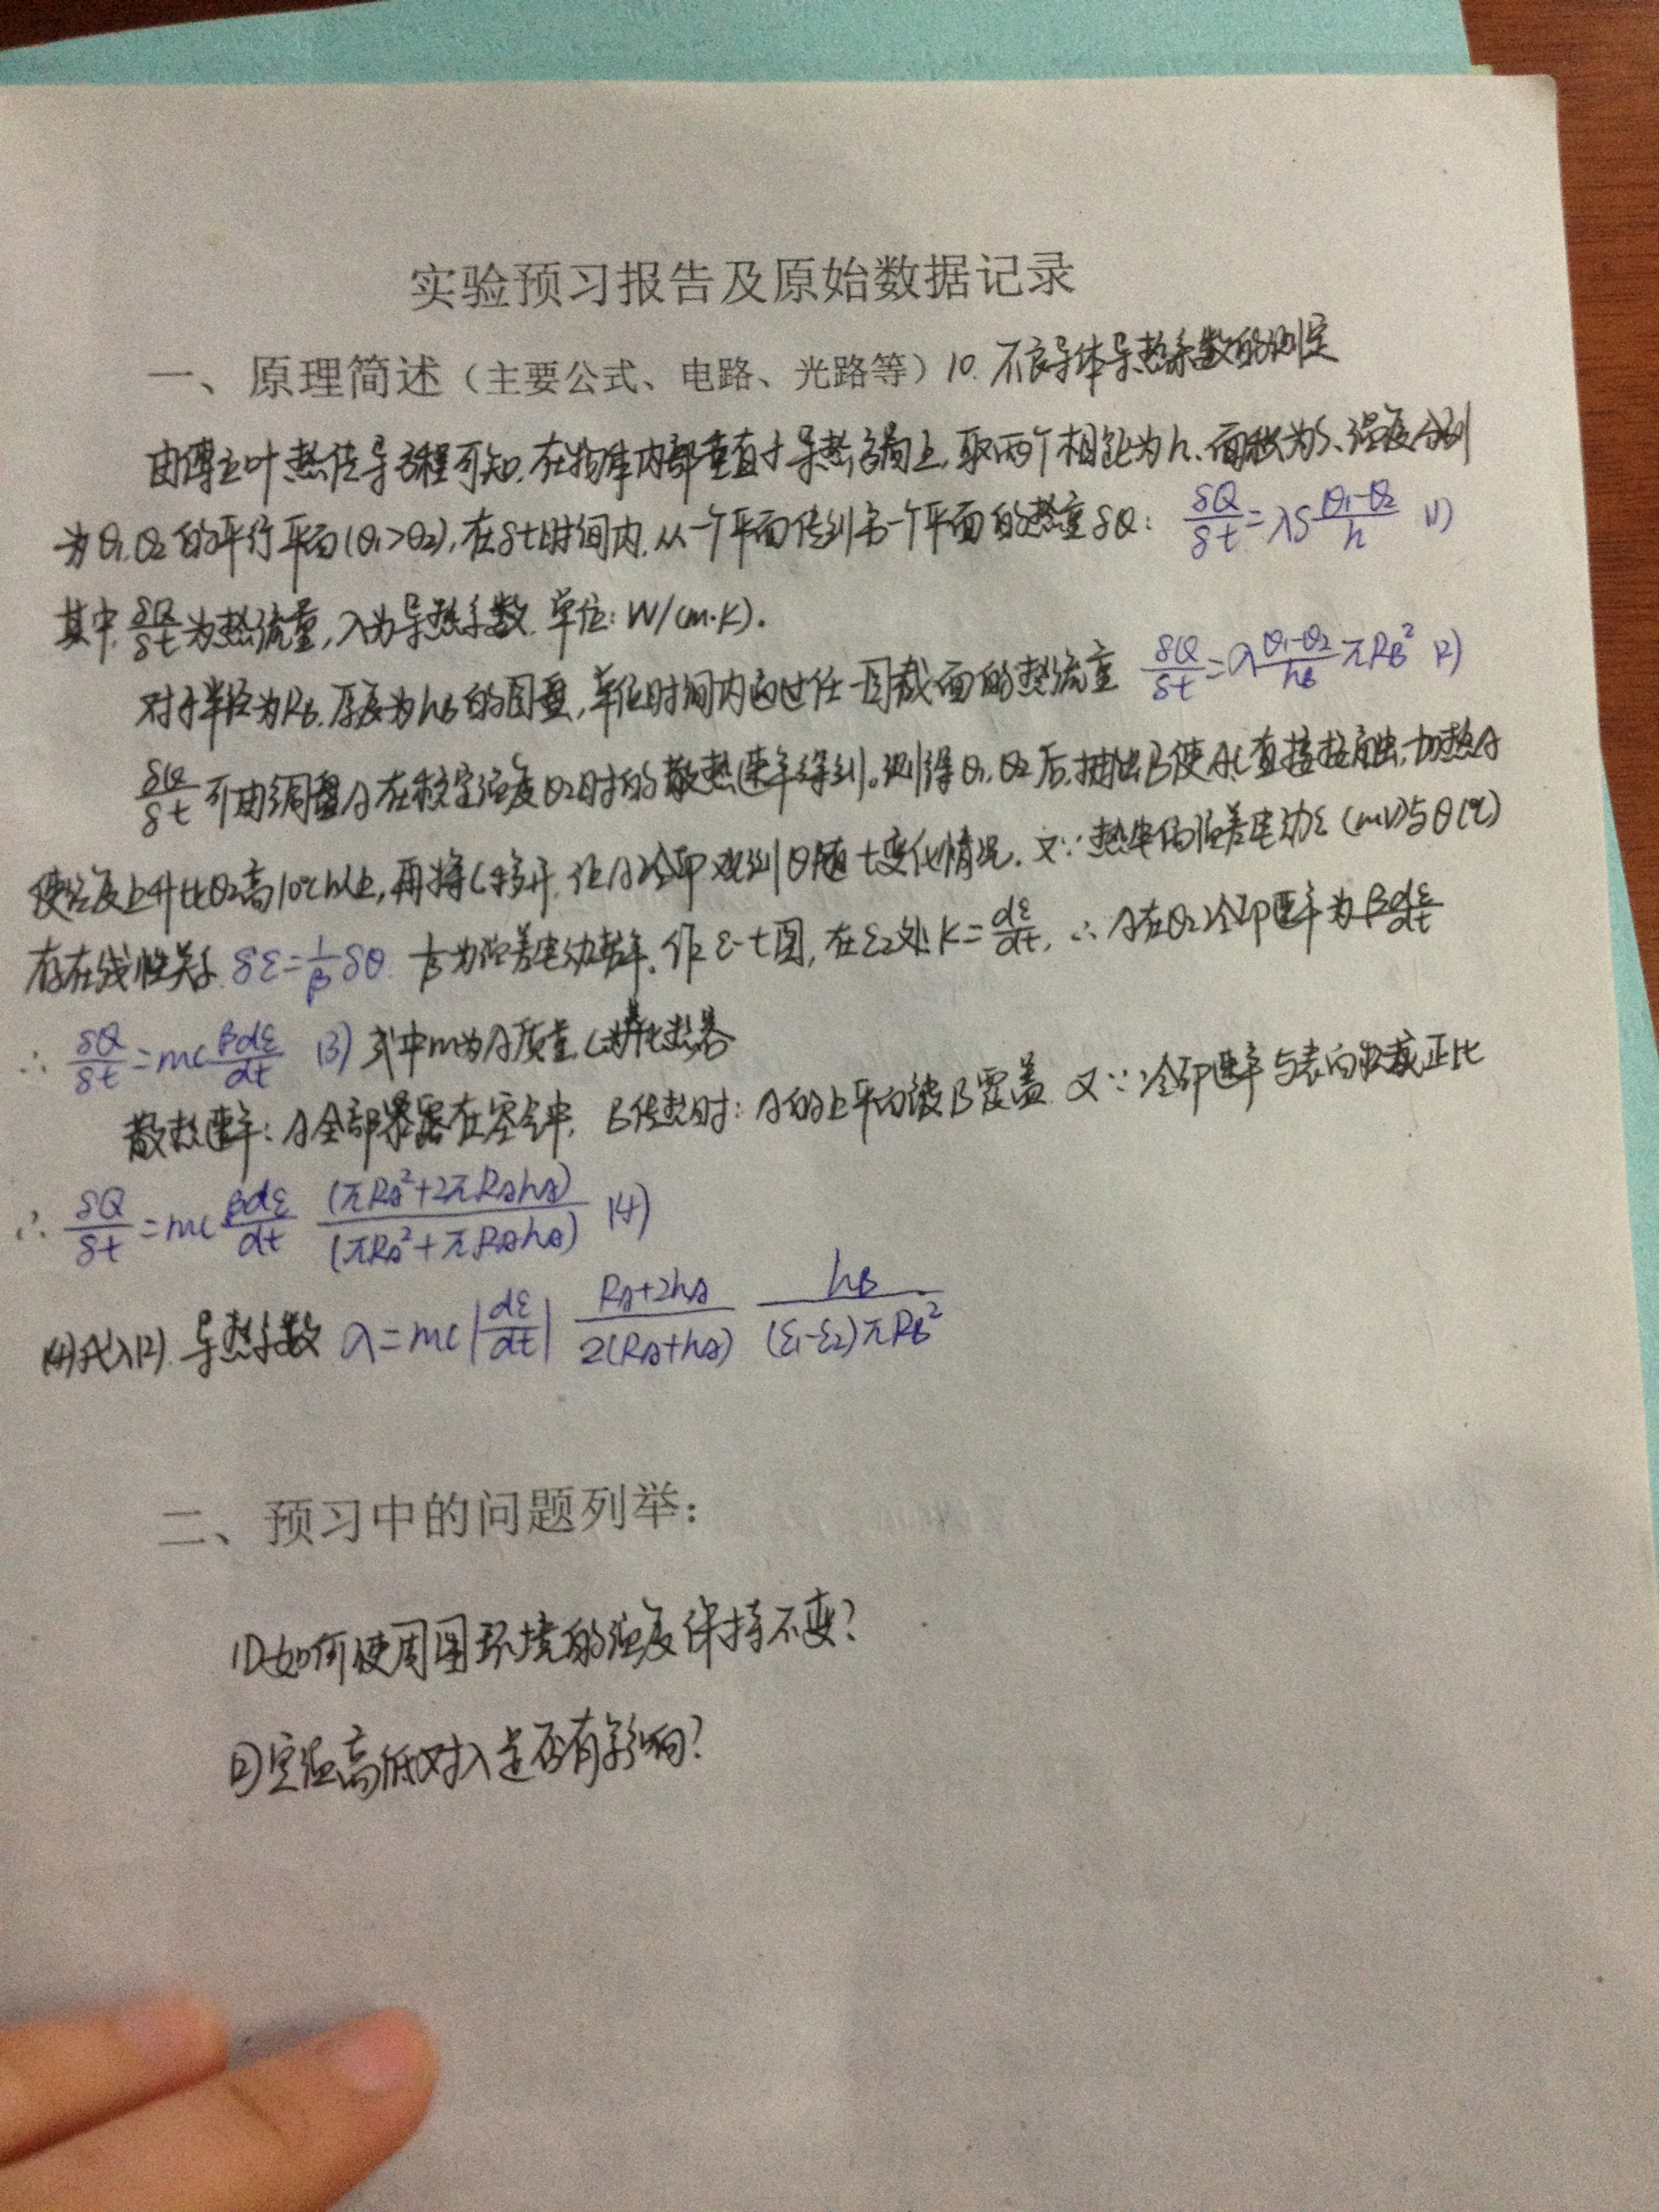 实验预习报告及原始数据记录
一、原理简述（主要公式、电路、光路等）10. 不良导体导热系数的测定
由傅立叶热传导方程可知，在物体内部垂直于导热方向上，取两个相距为h、面积为S、温度分别
为θ₁、θ₂的平行平面(θ₁>θ₂)，在δt时间内，从一个平面传到另一个平面的热量δQ： δQ/δt=λS(θ₁-θ₂)/h (1)
其中，δQ/δt为热流量，λ为导热系数. 单位：W/(m·K)。
对于半径为R_B，厚度为h_B的圆盘，单位时间内通过任一圆截面的热流量 δQ/δt=λ(θ₁-θ₂)/h_B πR_B² (2)
δQ/δt可由铜盘A在稳定温度θ₂时的散热速率得到。测得θ₁、θ₂后，抽出B使A、C直接接触，加热A
使温度上升比θ₂高10℃以上，再将C移开，让A冷却观测θ随t变化情况. 又∵热电偶温差电动ε(mV)与θ(℃)
存在线性关系 δε=1/β δθ. 1/β为温差电动势率。作ε-t图，在ε₂处K=dε/dt，∴A在θ₂冷却速率为βdε/dt
∴ δQ/δt=mc βdε/dt (3) 式中m为A质量，C为A比热容
散热速率：A全部暴露在空气中， B传热时：A的上平面被B覆盖. 又∵冷却速率与表面积成正比
∴ δQ/δt=mc βdε/dt (πR_A²+2πR_Ah_A)/(πR_A²+πR_Ah_A) (4)
(4)代入(2). 导热系数 λ=mc|dε/dt| (R_A+2h_A)/2(R_A+h_A) h_B/(ε₁-ε₂)πR_B²
二、预习中的问题列举：
(1)如何使周围环境的温度保持不变？
(2)室温高低对λ是否有影响？